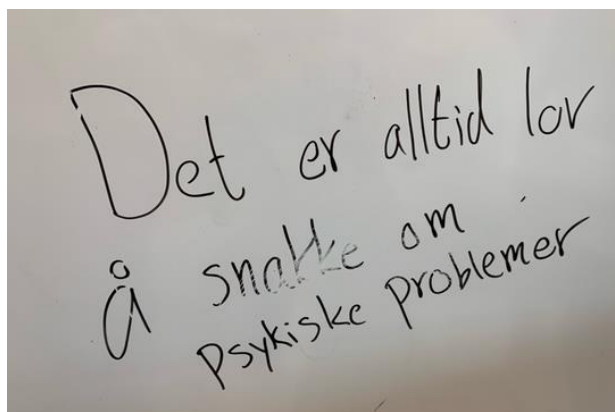 Det er alltid lov
å snakke om
psykiske problemer